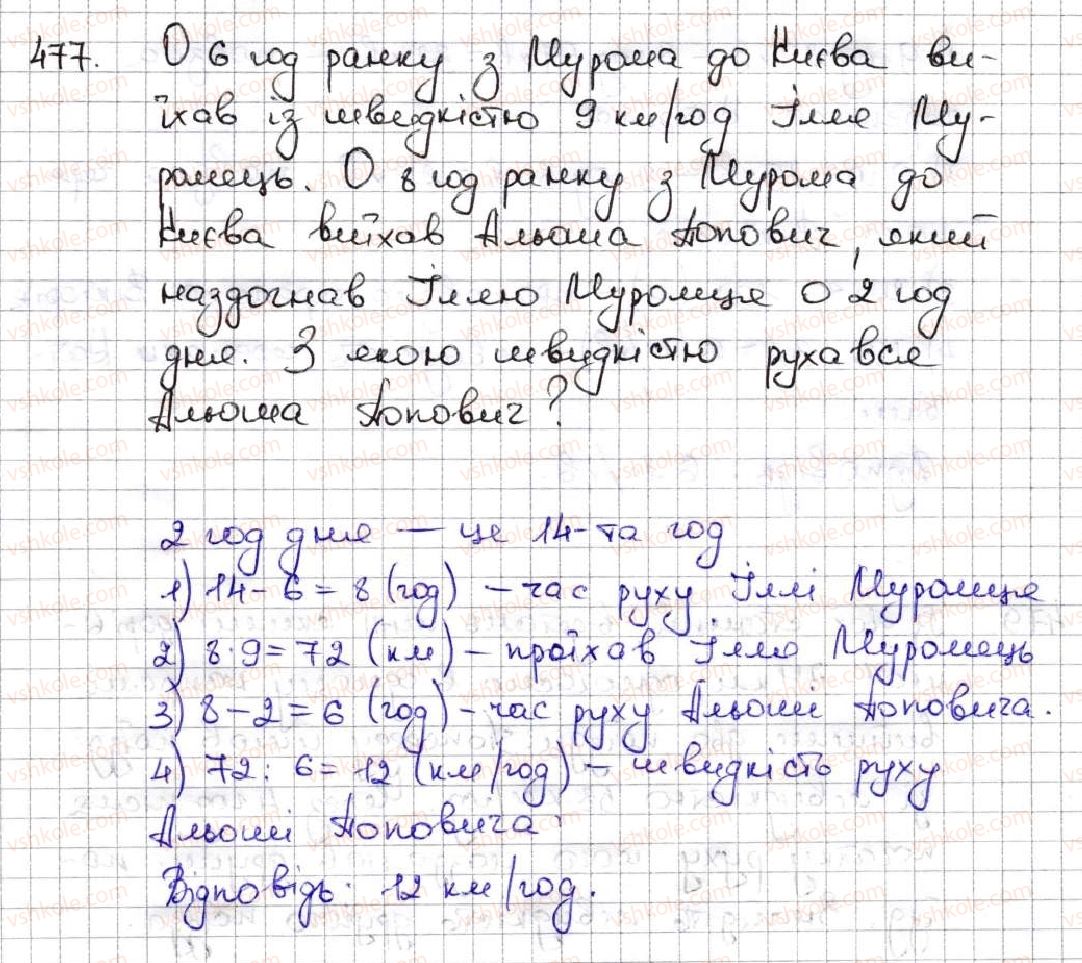 477. О 6 год ранку з Мурома до Києва ви-
їхав із швидкістю 9 км/год Ілля Му-
ромець. О 8 год ранку з Мурома до
Києва виїхав Альоша Попович, який
наздогнав Іллю Муромця о 2 год
дня. З якою швидкістю рухався
Альоша Попович?
2 год дня — це 14-та год
1) 14 - 6 = 8 (год) - час руху Іллі Муромця
2) 8 · 9 = 72 (км) - проїхав Ілля Муромець
3) 8 - 2 = 6 (год) - час руху Альоші Поповича.
4) 72 : 6 = 12 (км/год) - швидкість руху
Альоші Поповича
Відповідь: 12 км/год.